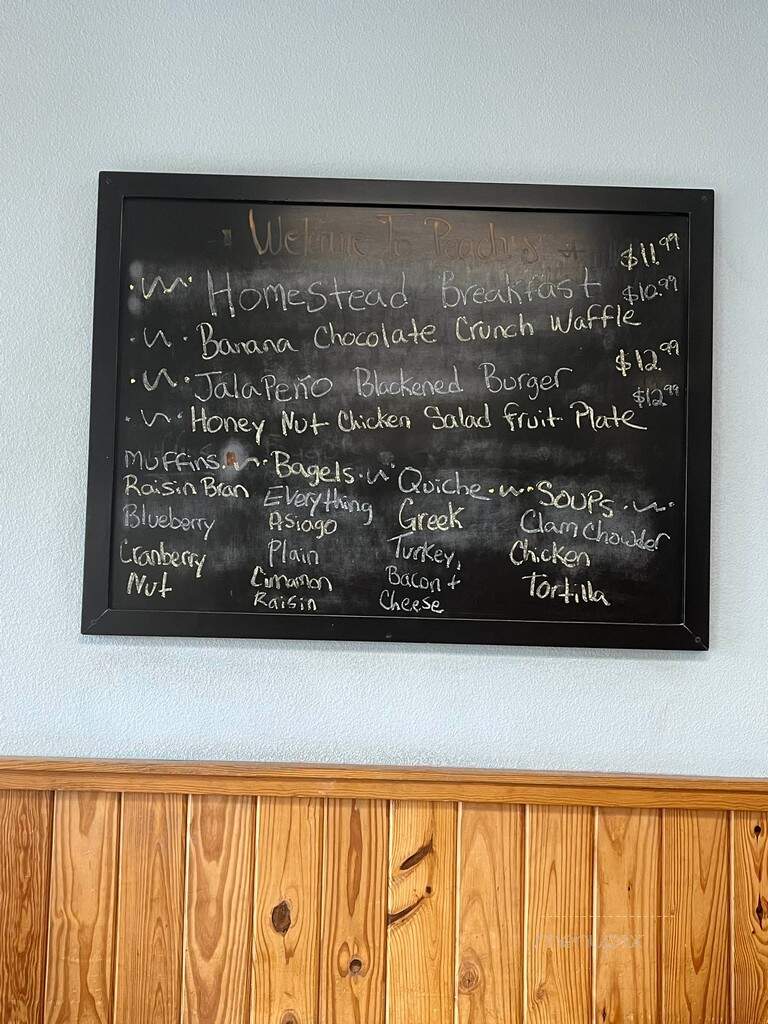 Welcome To Peaches
$11.99
Homestead Breakfast
$10.99
Banana Chocolate Crunch Waffle
$12.99
JalaPeño Blackened Burger
$12.99
Honey Nut Chicken Salad Fruit Plate
Muffins
Raisin Bran
Blueberry
Cranberry
Nut
Bagels
Everything
Asiago
Plain
Cinnamon
Raisin
Quiche
Greek
Turkey,
Bacon +
Cheese
Soups
Clam Chowder
Chicken
Tortilla
menupix